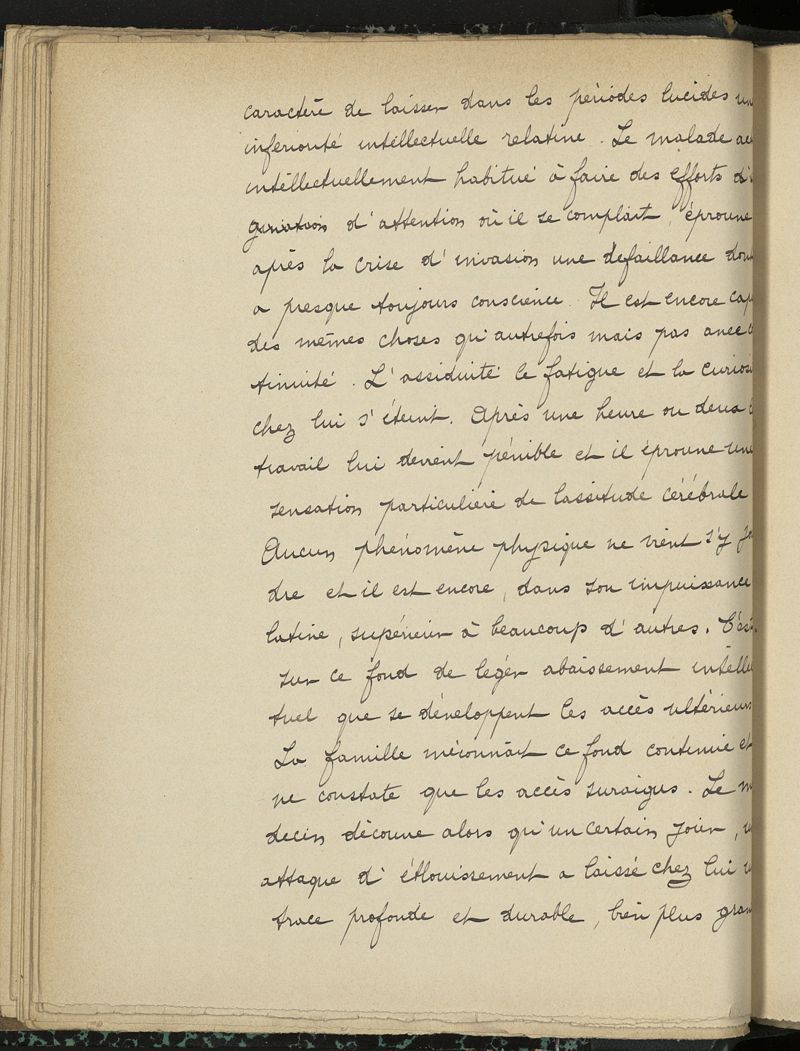 caractère de laisser dans les périodes lucides un
infériorité intellectuelle relative. Le malade
intéllectuellement habitué à faire des efforts d'
d'attention où il se complait, éprouve
après la crise d'invasion une défaillance don
a presque toujours conscience. Il est encore cap
des mêmes choses qu'autrefois mais pas avec
tinuité. L'assiduité le fatigue et la curiosi
chez lui s'éteint. Après une heure ou deux
travail lui devient pénible et il éprouve une
sensation particulière de lassitude cérébrale
Aucun phénomène physique ne vient s'y jo
dre et il est encore, dans son impuissance
lative, supérieur à beaucoup d'autres. C'est
sur ce fond de légér abaissement intellec
tuel que se développent les accès ultérieurs
La famille méconnait ce fond continue et
ne constate que les accès suraigus. Le m
decin découvre alors qu'un certain jour, u
attaque d'éblouissement a laissé chez lui u
trace profonde et durable, bien plus gran